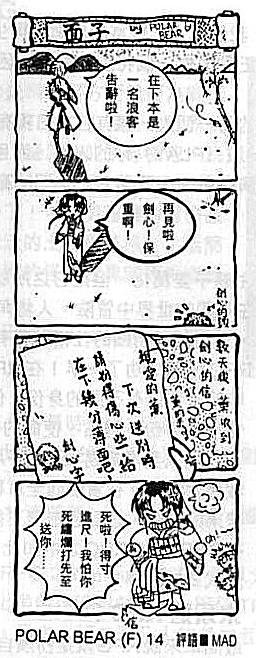 面子
POLAR
BEAR
在下本是
一名浪客,
告辭啦!
再見啦。
劍心!保
重啊!
數天後,薰收到
劍心的信
親愛的薰
下次送別時
請扮得傷心些…給
在下幾分薄面吧!
劍心字
死啦!得寸
進尺!我怕你
死纏爛打先至
送你……
信
POLAR BEAR (F) 14 評語■MAD